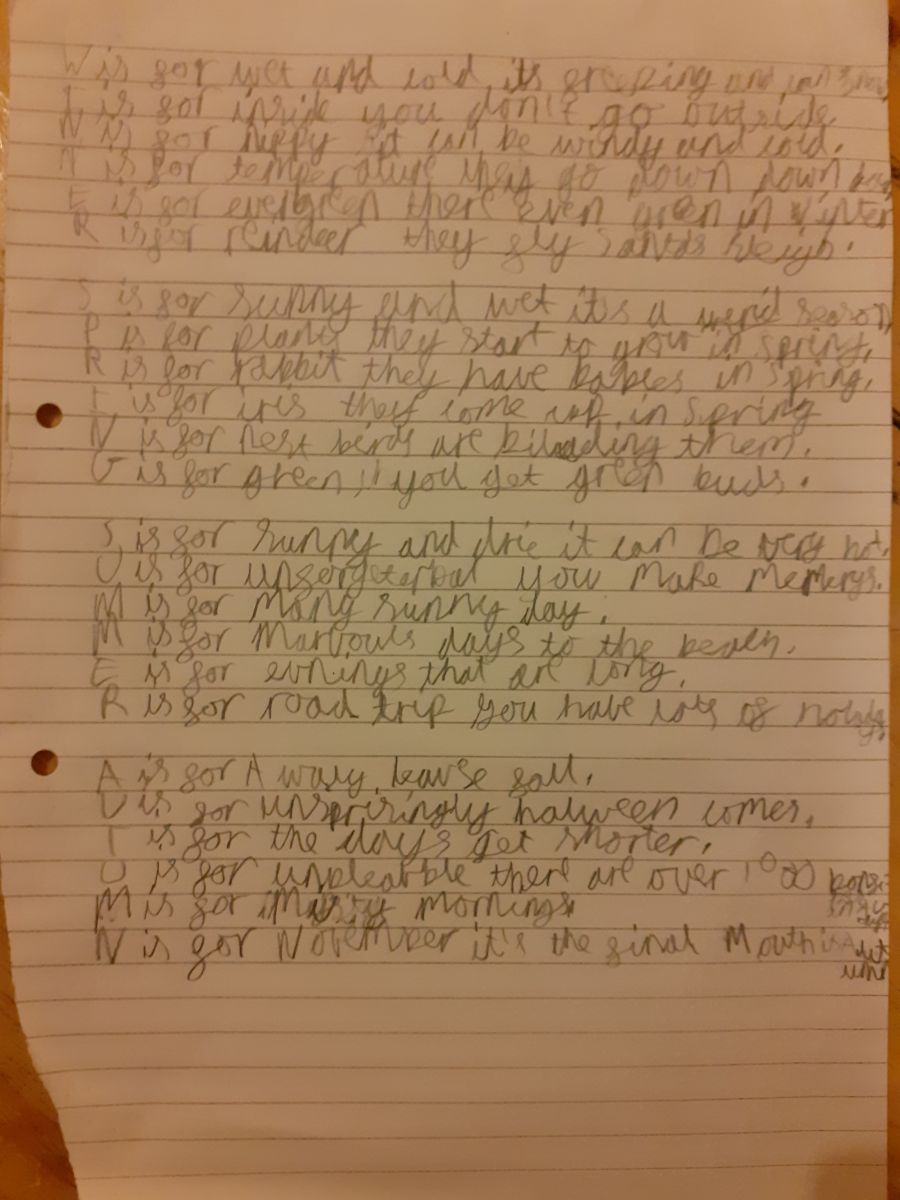 W is for wet and cold its freezing and can snow
I is for inside you don't go outside
N is for nippy it can be windy and cold.
T is for temperature they go down down
E is for evergreen there even green in winter
R is for reindeer they fly santas sleigh.
S is for sunny and wet it's a season
P is for plants they start to grow in spring.
R is for rabbit they have babies in spring.
I is for iris they come up in spring
N is for nest birds are them.
G is for green!! you get green buds.
S is for sunny and drie it can be very hot.
U is for you make memerys.
M is for many sunny day.
M is for marvouls days to the beach.
E is for evnings that are long.
R is for road trip you have lots of
A is for A leavse fall.
U is for unsprisingly halween comes.
T is for the days get shorter.
U is for there are over 1000
M is for mornings
N is for November it's the final Mouth